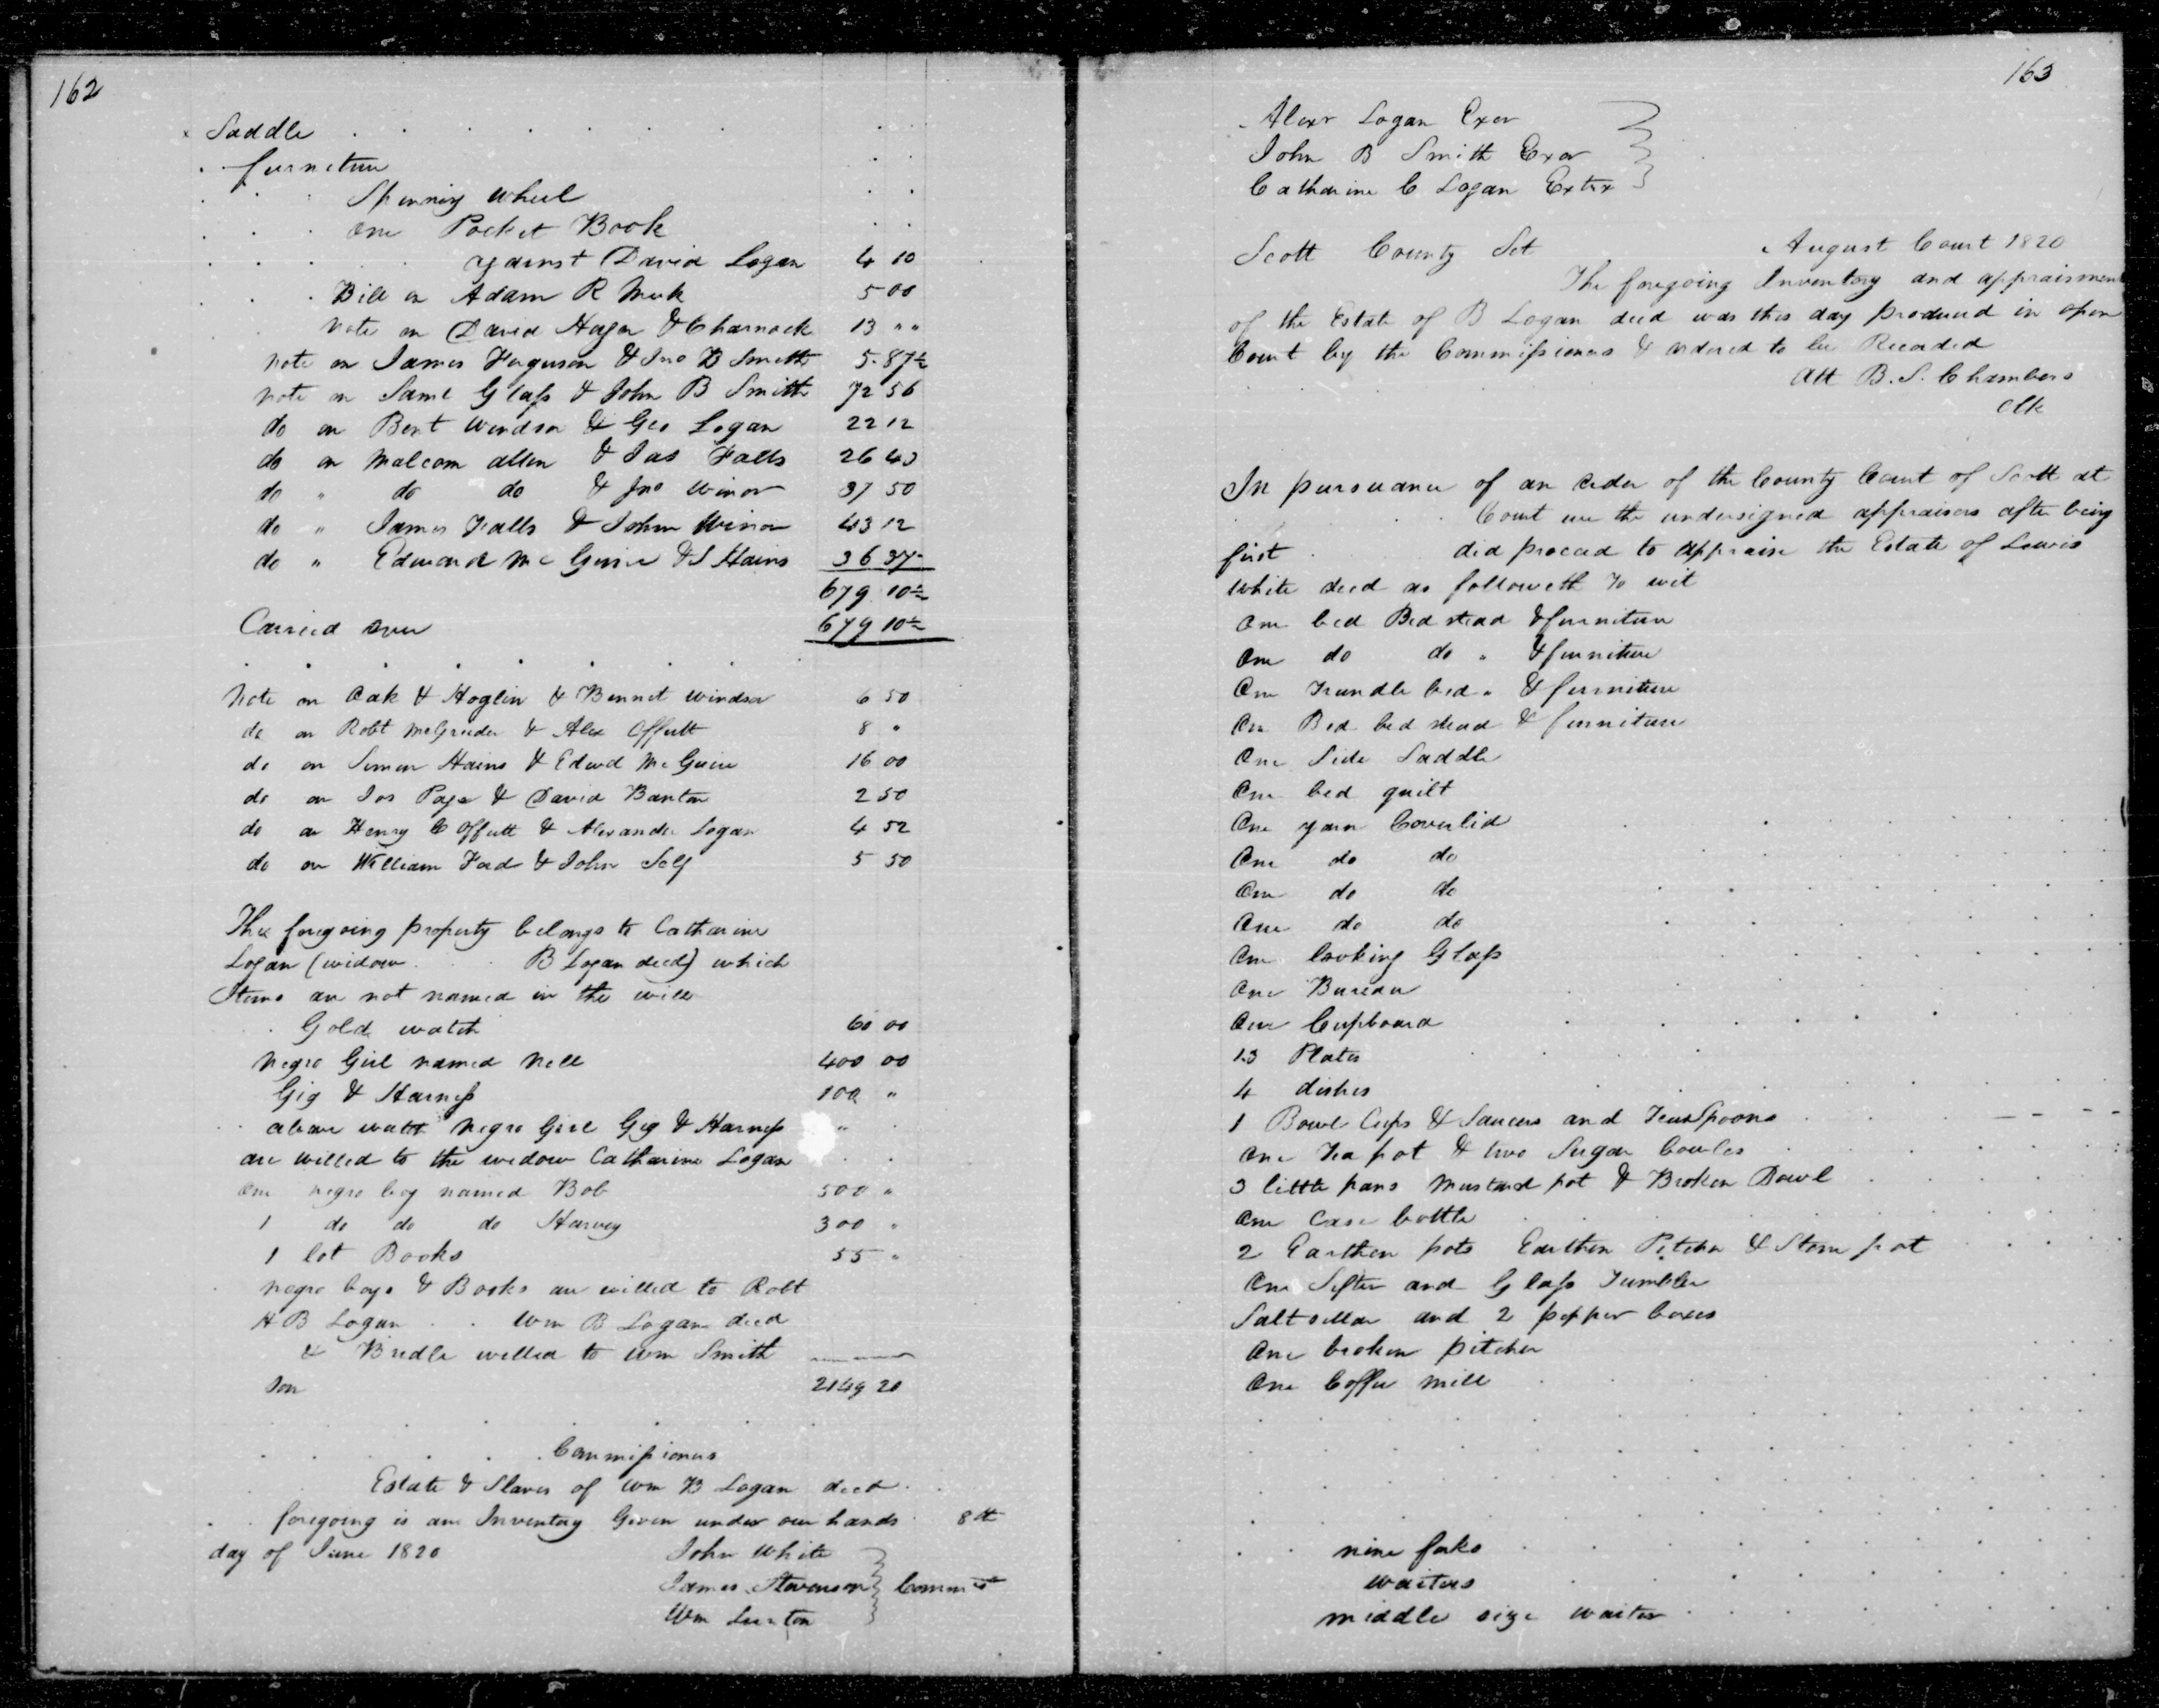 162
Saddle
furniture
Spinning Wheel
one Pocket Book
against David Logan 4 10
Bill on Adam R Meek 5 00
Note on David Hagar & Charnock 13 " "
Note on James Ferguson & Jno B Smith 5.87½
Note on Saml Glass & John B Smith 72 56
do on Bent Windsor & Geo Logan 22 12
do on Malcom Allen & Jas Falls 26 43
do " do do & Jno Winor 37 50
do " James Falls & John Winor 43 12
do " Edward McGuire & S Hains 36 37½
679 10½
Carried over 679 10½
Note on Oak H Hoglin & Bennet Windsor 6 50
do on Robt McGruder & Alex Offutt 8 "
do on Simon Hains & Edwd McGuire 16 00
do on Jos Page & David Banton 2 50
do on Henry C Offutt & Alexander Logan 4 52
do on William Ford & John Self 5 50
The foregoing property belongs to Catharine
Logan (widow B Logan decd) which
Items are not named in the will
Gold watch 60 00
Negro Girl named Nell 400 00
Gig & Harness 100 "
above watch Negro Girl Gig & Harness "
are willed to the widow Catharine Logan
One negro boy named Bob 500 "
1 do do do Harvey 300 "
1 lot Books 55 "
Negro boys & Books are willed to Robt
H B Logan Wm B Logan decd
& Bridle willed to Wm Smith
Son 2149 20
Commissioners
Estate & Slaves of Wm B Logan decd
foregoing is an Inventory Given under our hands 8th
day of June 1820 John White
James Stevenson } Commrs
Wm Surton
163
Alexr Logan Exor
John B Smith Exor
Catharine C Logan Extrx
Scott County Sct August Court 1820
The foregoing Inventory and appraisment
of the Estate of B Logan decd was this day produced in open
Court by the Commissioners & ordered to be Recorded
Att B. S. Chambers
Clk
In pursuance of an order of the County Court of Scott at
Court we the undersigned appraisers after being
first did proceed to appraise the Estate of Lewis
White decd as followeth To wit
One bed Bedstead & furniture
One do do " & furniture
One Trundle bed " & furniture
One Bed bedstead & furniture
One Side Saddle
One bed quilt
One yarn Coverlid
One do do
One do do
One do do
One looking Glass
One Bureau
One Cupboard
13 Plates
4 dishes
1 Bowl Cups & Saucers and TeaSpoons
One Tea pot & two Sugar bowles
3 little pans Mustard pot & Broken Bowl
One Case bottle
2 Earthen pots Earthen Pitcher & Stone pot
One Sifter and Glass Tumbler
Salt sellar and 2 pepper boxes
One broken pitcher
One Coffee mill
nine forks
waiters
middle size waiter